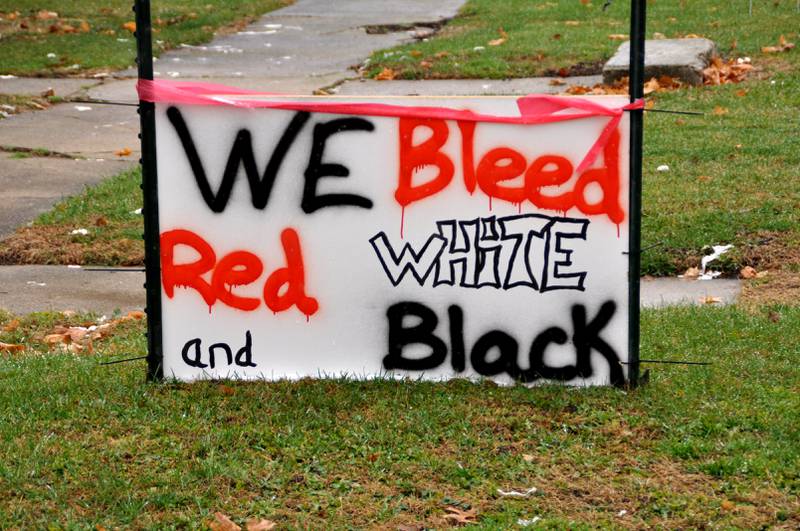 WE Bleed
Red WHiTE
and Black